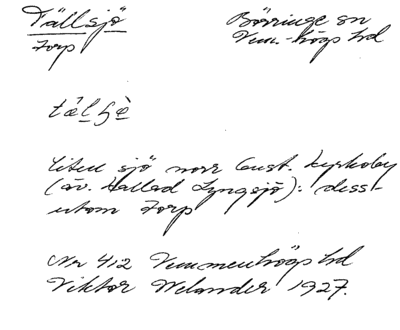 Tällsjö
Torp
Börringe sn
Vem.-högs hd
Liten sjö norr Gust. kyrkoby
(äv. kallad Lyngsjö): dess-
utom Torp
Nr 412 Vemmenhögs hd
Viktor Welander 1927.